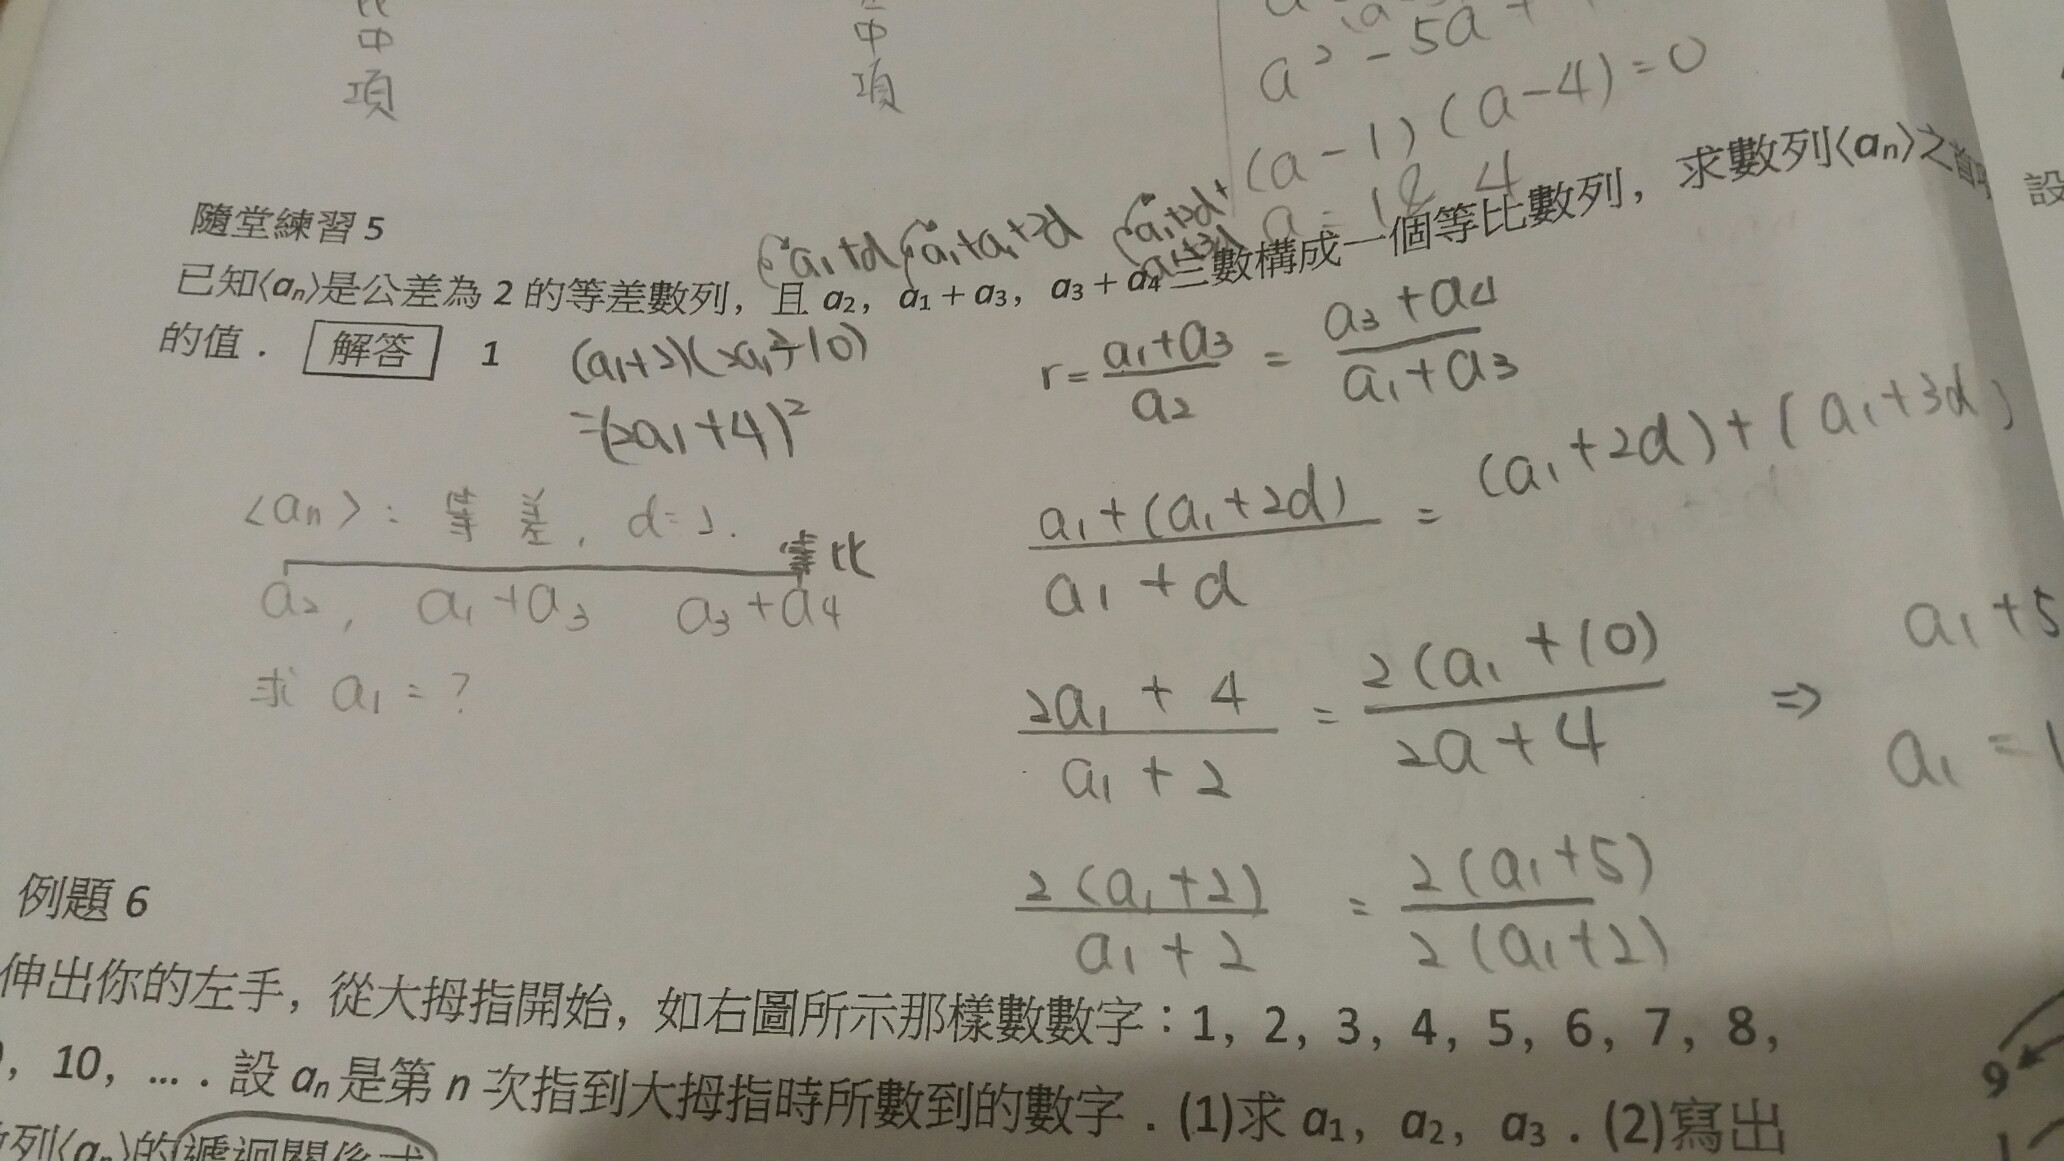 中
項
中
項
a² - 5a +
(a - 1)(a - 4) = 0
a = 1 4
隨堂練習 5
a₁+d a₁+a₁+2d a₁+2d+
a₁+3d
已知⟨aₙ⟩是公差為 2 的等差數列，且 a₂，a₁ + a₃，a₃ + a₄三數構成一個等比數列，求數列⟨aₙ⟩之首項
的值． 解答 1
(a₁+2)(2a₁+10)
=(2a₁+4)²
r = (a₁+a₃)/a₂ = (a₃+a₄)/(a₁+a₃)
(a₁+(a₁+2d))/(a₁+d) = (a₁+2d)+(a₁+3d)
⟨aₙ⟩: 等差, d=2.
等比
a₂, a₁+a₃ a₃+a₄
求 a₁ = ?
(2a₁+4)/(a₁+2) = 2(a₁+10)/(2a+4) ⇒
a₁+5
a₁ = 1
2(a₁+2)/(a₁+2) = 2(a₁+5)/(2(a₁+2))
例題 6
伸出你的左手，從大拇指開始，如右圖所示那樣數數字：1，2，3，4，5，6，7，8，
，10，…．設 aₙ是第 n 次指到大拇指時所數到的數字．(1)求 a₁，a₂，a₃．(2)寫出
列⟨aₙ⟩的遞迴關係式
設
9
1